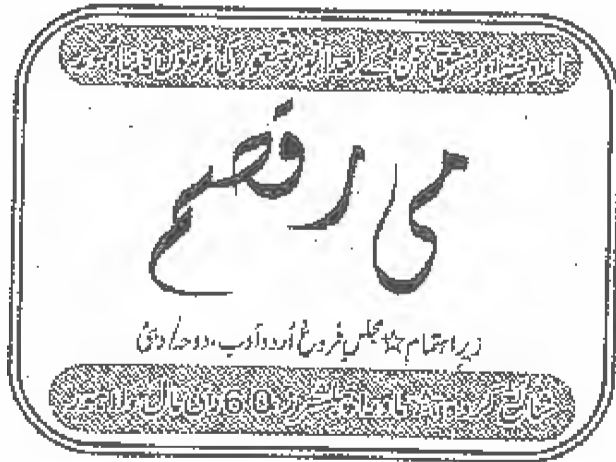 اندوختہ اور مشقِ سخن کے بعد انور شعور کی غزلوں کا نیا مجموعہ
می رقصم
زیرِ اہتمام ☆ مجلسِ فروغِ اُردو ادب، دوحہ/دبئی
شائع کردہ: ماورا پبلشرز، 60 دی مال، لاہور